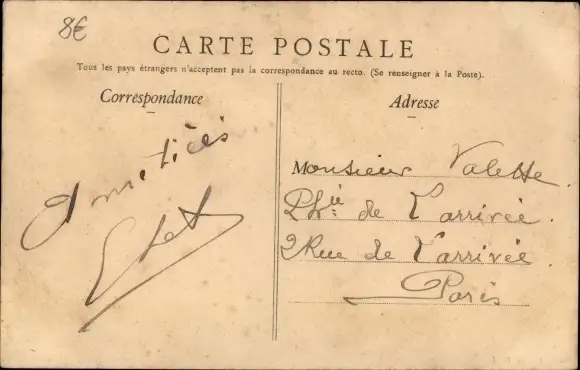 8€
CARTE POSTALE
Tous les pays étrangers n'acceptent pas la correspondance au recto. (Se renseigner à la Poste).
Correspondance
Adresse
Amitiés
Monsieur Valette
Phie de l'arrivée.
2 Rue de l'arrivée
Paris